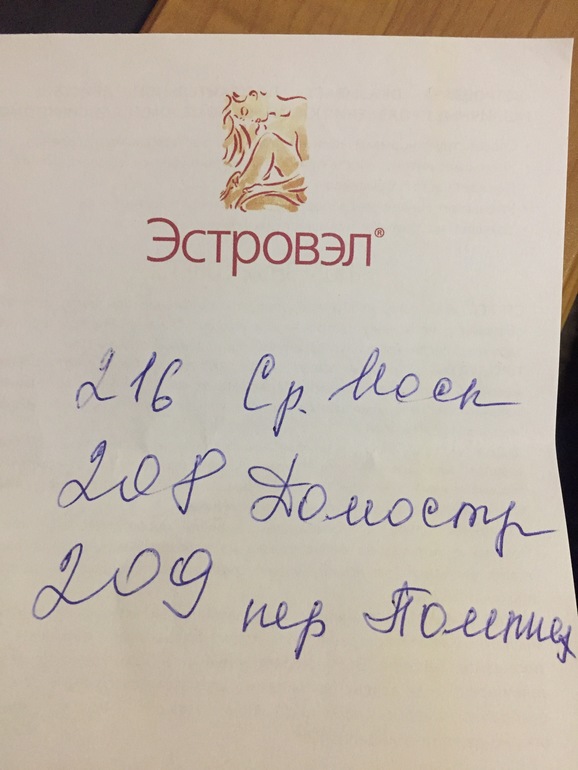 Эстровэл®
216 Ср. Моск
208 Домостр
209 пер